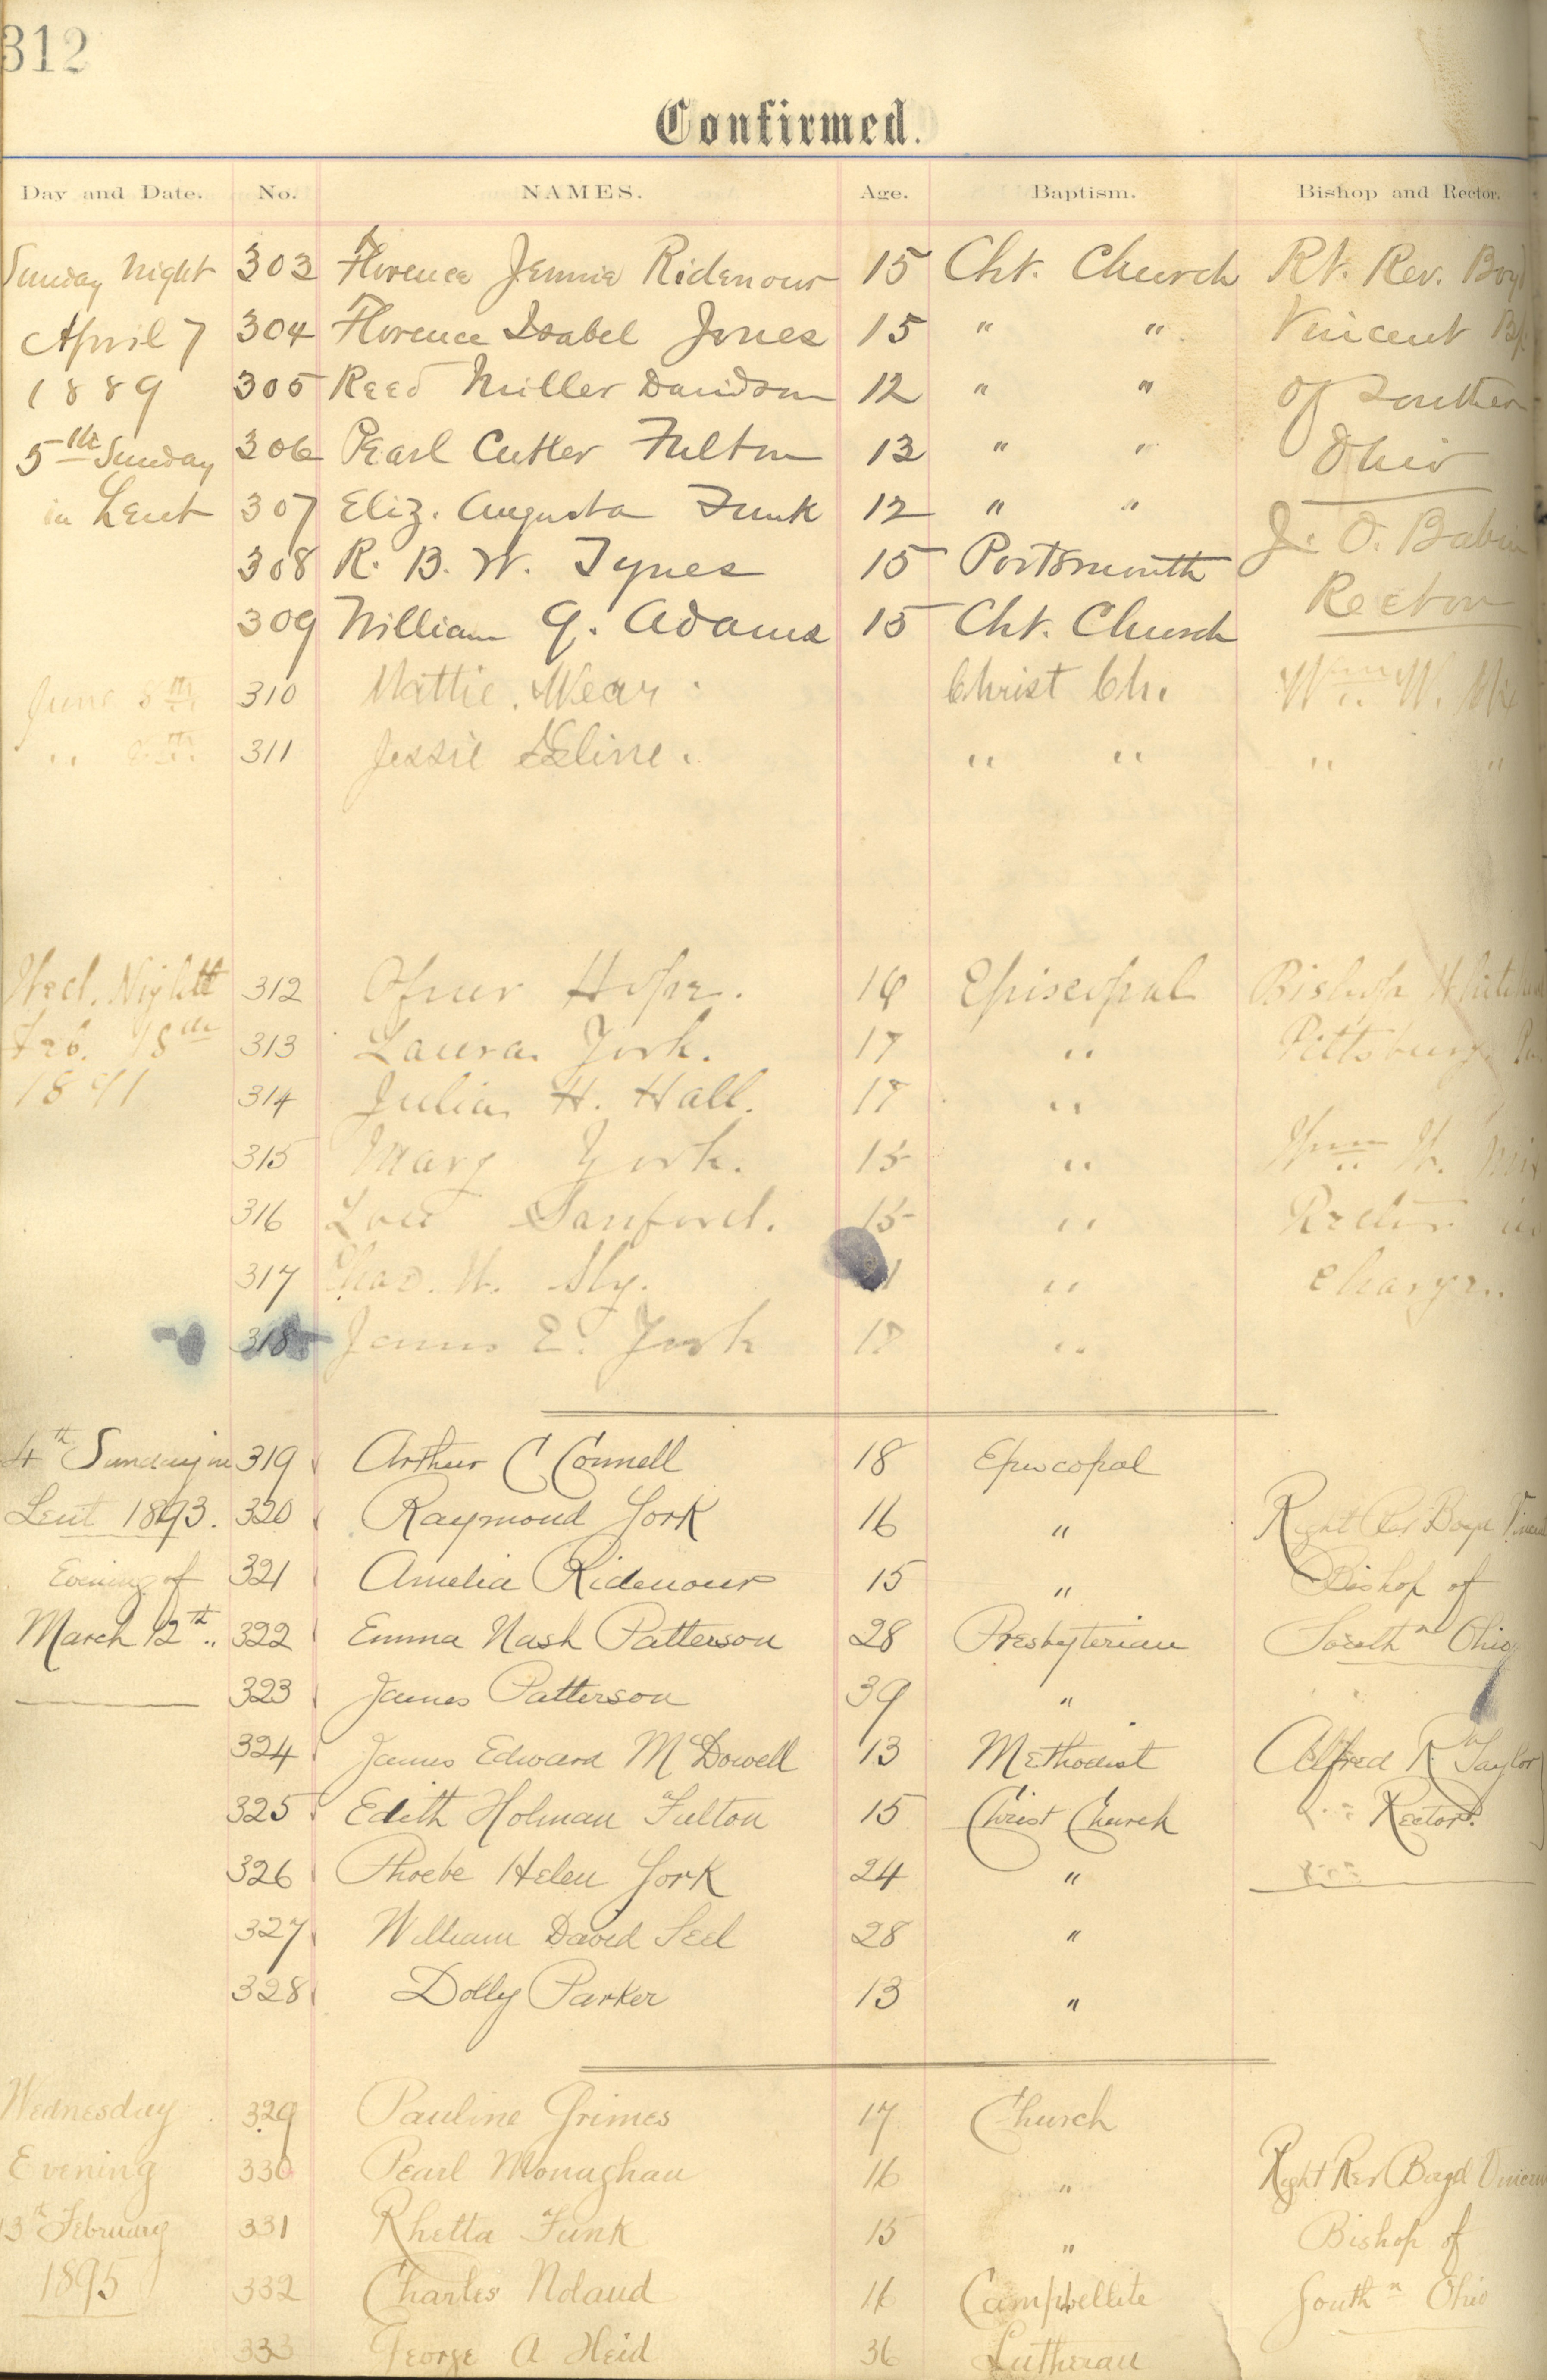 312
Confirmed.
Day and Date. No. NAMES. Age. Baptism. Bishop and Rector.
Sunday Night 303 Florence Jennie Ridenour 15 Cht. Church Rt. Rev. Boyd
April 7 304 Florence Isabel Jones 15 " " Vincent Bp.
1889 305 Reed Miller Davidson 12 " " of Southern
5th Sunday 306 Pearl Cutler Fulton 13 " " Ohio
in Lent 307 Eliz. Augusta Funk 12 " " J. O. Babin
308 R. B. W. Tynes 15 Portsmouth Rector
309 William G. Adams 15 Cht. Church
June 8th 310 Mattie Wear. Christ Ch. Wm. W.
" 8th 311 Jessie Cline. " " " "
Wed. Night 312 Hope. 16 Episcopal Bishop
Feb. 18th 313 Laura York. 17 " Pittsburg
1891 314 Julia H. Hall. 17 "
315 Mary York. 15 " Wm. W.
316 Lou Sanford. 15 " Rector in
317 Chas. W. Sly. " charge.
318 James E. York 17 "
4th Sunday in 319 Arthur C Connell 18 Episcopal
Lent 1893. 320 Raymond York 16 " Right Rev Boyd Vincent
Evening of 321 Amelia Ridenour 15 " Bishop of
March 12th 322 Emma Nash Patterson 28 Presbyterian Southn Ohio
323 James Patterson 39 "
324 James Edward McDowell 13 Methodist Alfred R Taylor
325 Edith Holman Fulton 15 Christ Church Rector.
326 Phoebe Helen York 24 "
327 William David Seel 28 "
328 Dolly Parker 13 "
Wednesday 329 Pauline Grimes 17 Church
Evening 330 Pearl Monaghan 16 " Right Rev Boyd Vincent
13th February 331 Rhetta Funk 15 " Bishop of
1895 332 Charles Noland 16 Campbellite Southn Ohio
333 George A Heid 36 Lutheran